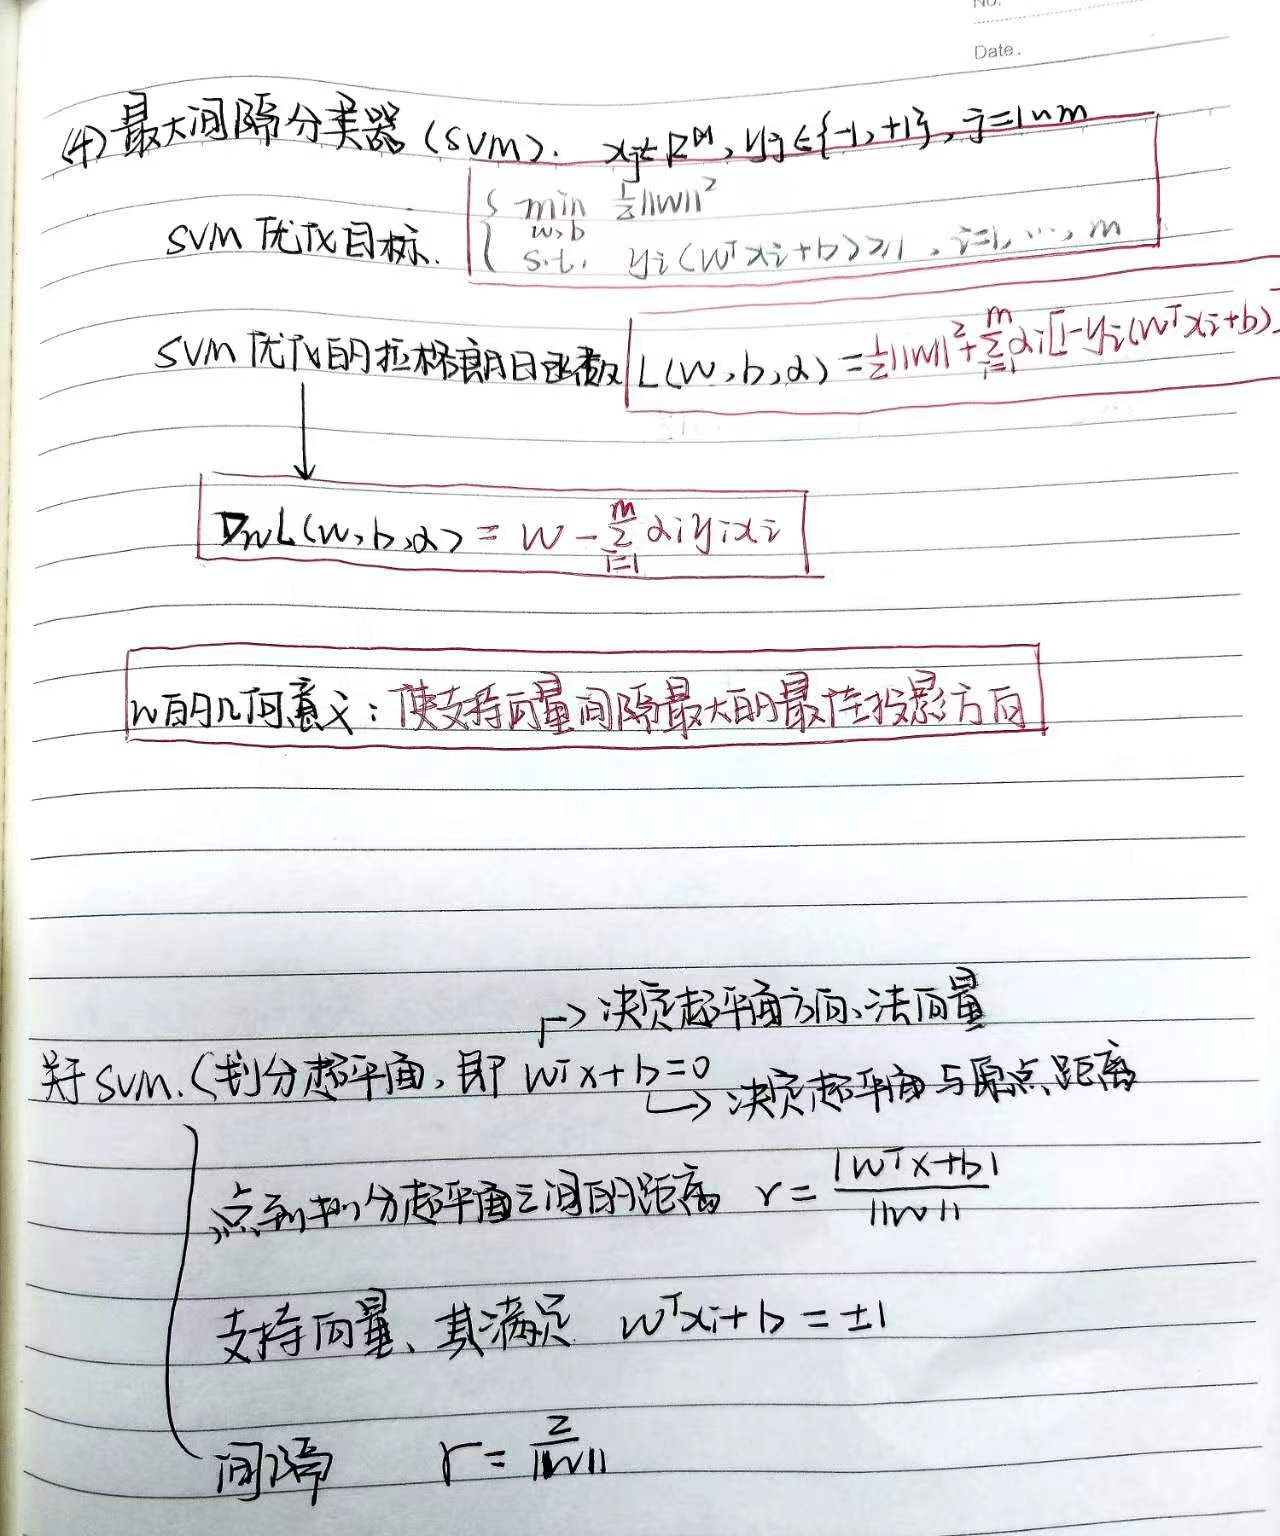 No.
Date.
(4) 最大间隔分类器 (SVM). xj∈R^M, yj∈{-1,+1}, j=1~m
SVM 优化目标. { min w,b ½||w||²
s.t. yi(wᵀxi+b)≥1, i=1,…,m
SVM 优化的拉格朗日函数 L(w,b,α)=½||w||²+∑_{i=1}^{m} αi[1-yi(wᵀxi+b)]
∇wL(w,b,α) = w - ∑_{i=1}^{m} αiyixi
w的几何意义：使支持向量间隔最大的最佳投影方向
→决定超平面方向、法向量
关于SVM.(划分超平面,即 wᵀx+b=0
→决定超平面与原点距离
点到划分超平面之间的距离 r = |wᵀx+b| / ||w||
支持向量、其满足 wᵀxi+b = ±1
间隔 r = 2 / ||w||